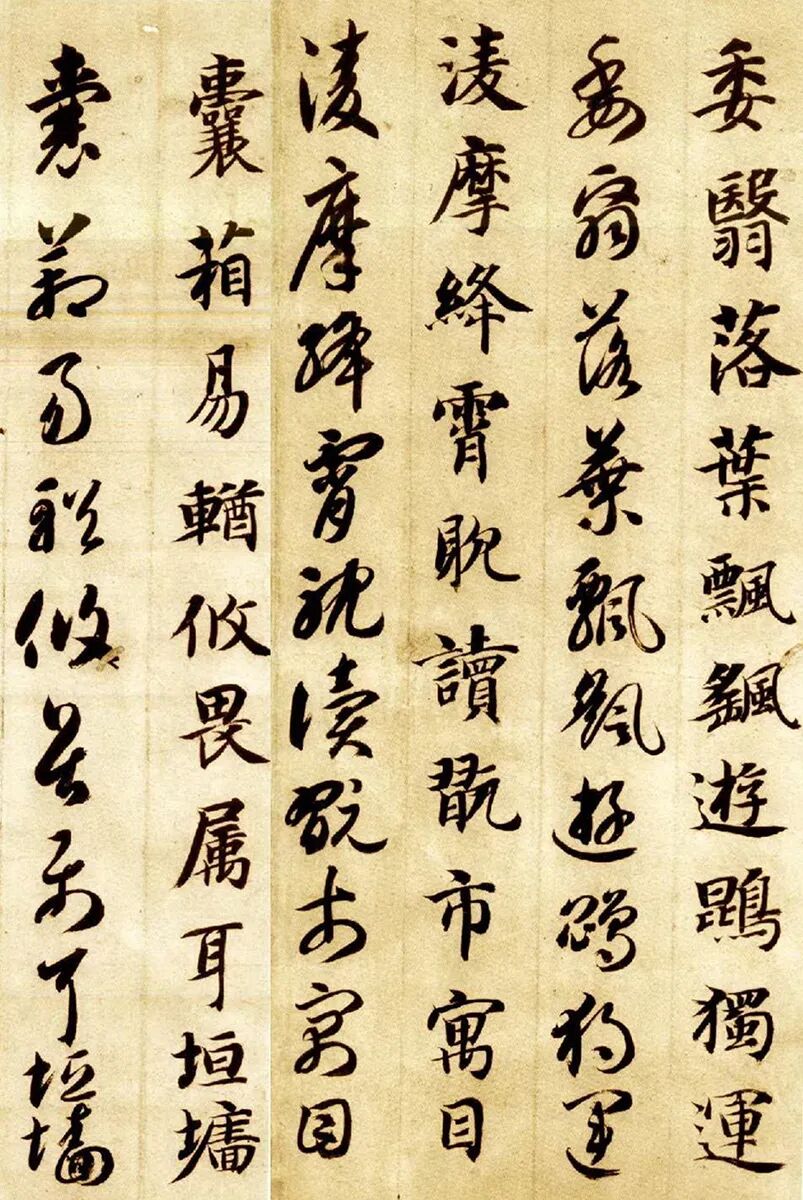 委翳落葉飄颻遊鵾獨運
委翳落葉飄颻遊鵾獨運
淩摩絳霄耽讀翫市寓目
淩摩絳霄耽讀翫市寓目
囊箱易輶攸畏属耳垣墻
囊箱易輶攸畏属耳垣墻